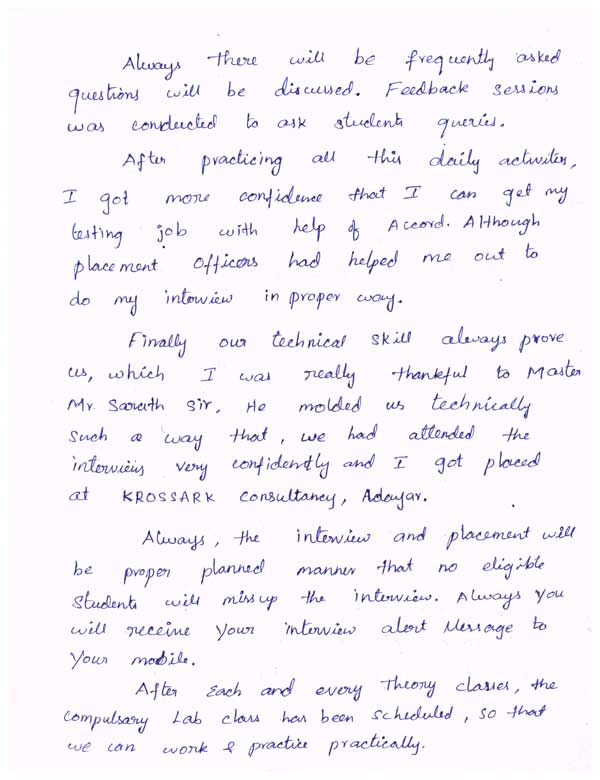 Always there will be frequently asked
questions will be discussed. Feedback sessions
was conducted to ask students queries.
After practicing all this daily activites,
I got more confidence that I can get my
testing job with help of Accord. Although
placement Officers had helped me out to
do my interview in proper way.
Finally our technical skill always prove
us, which I was really thankful to Master
Mr. Sarath Sir. He molded us technically
Such a way that, we had attended the
interviews very confidently and I got placed
at KROSSARK consultancy, Adayar.
Always, the interview and placement will
be proper planned manner that no eligible
Students will miss up the interview. Always you
will receive your interview alert Message to
Your mobile.
After Each and every Theory classes, the
Compulsary Lab class has been scheduled, so that
we can work & practice practically.